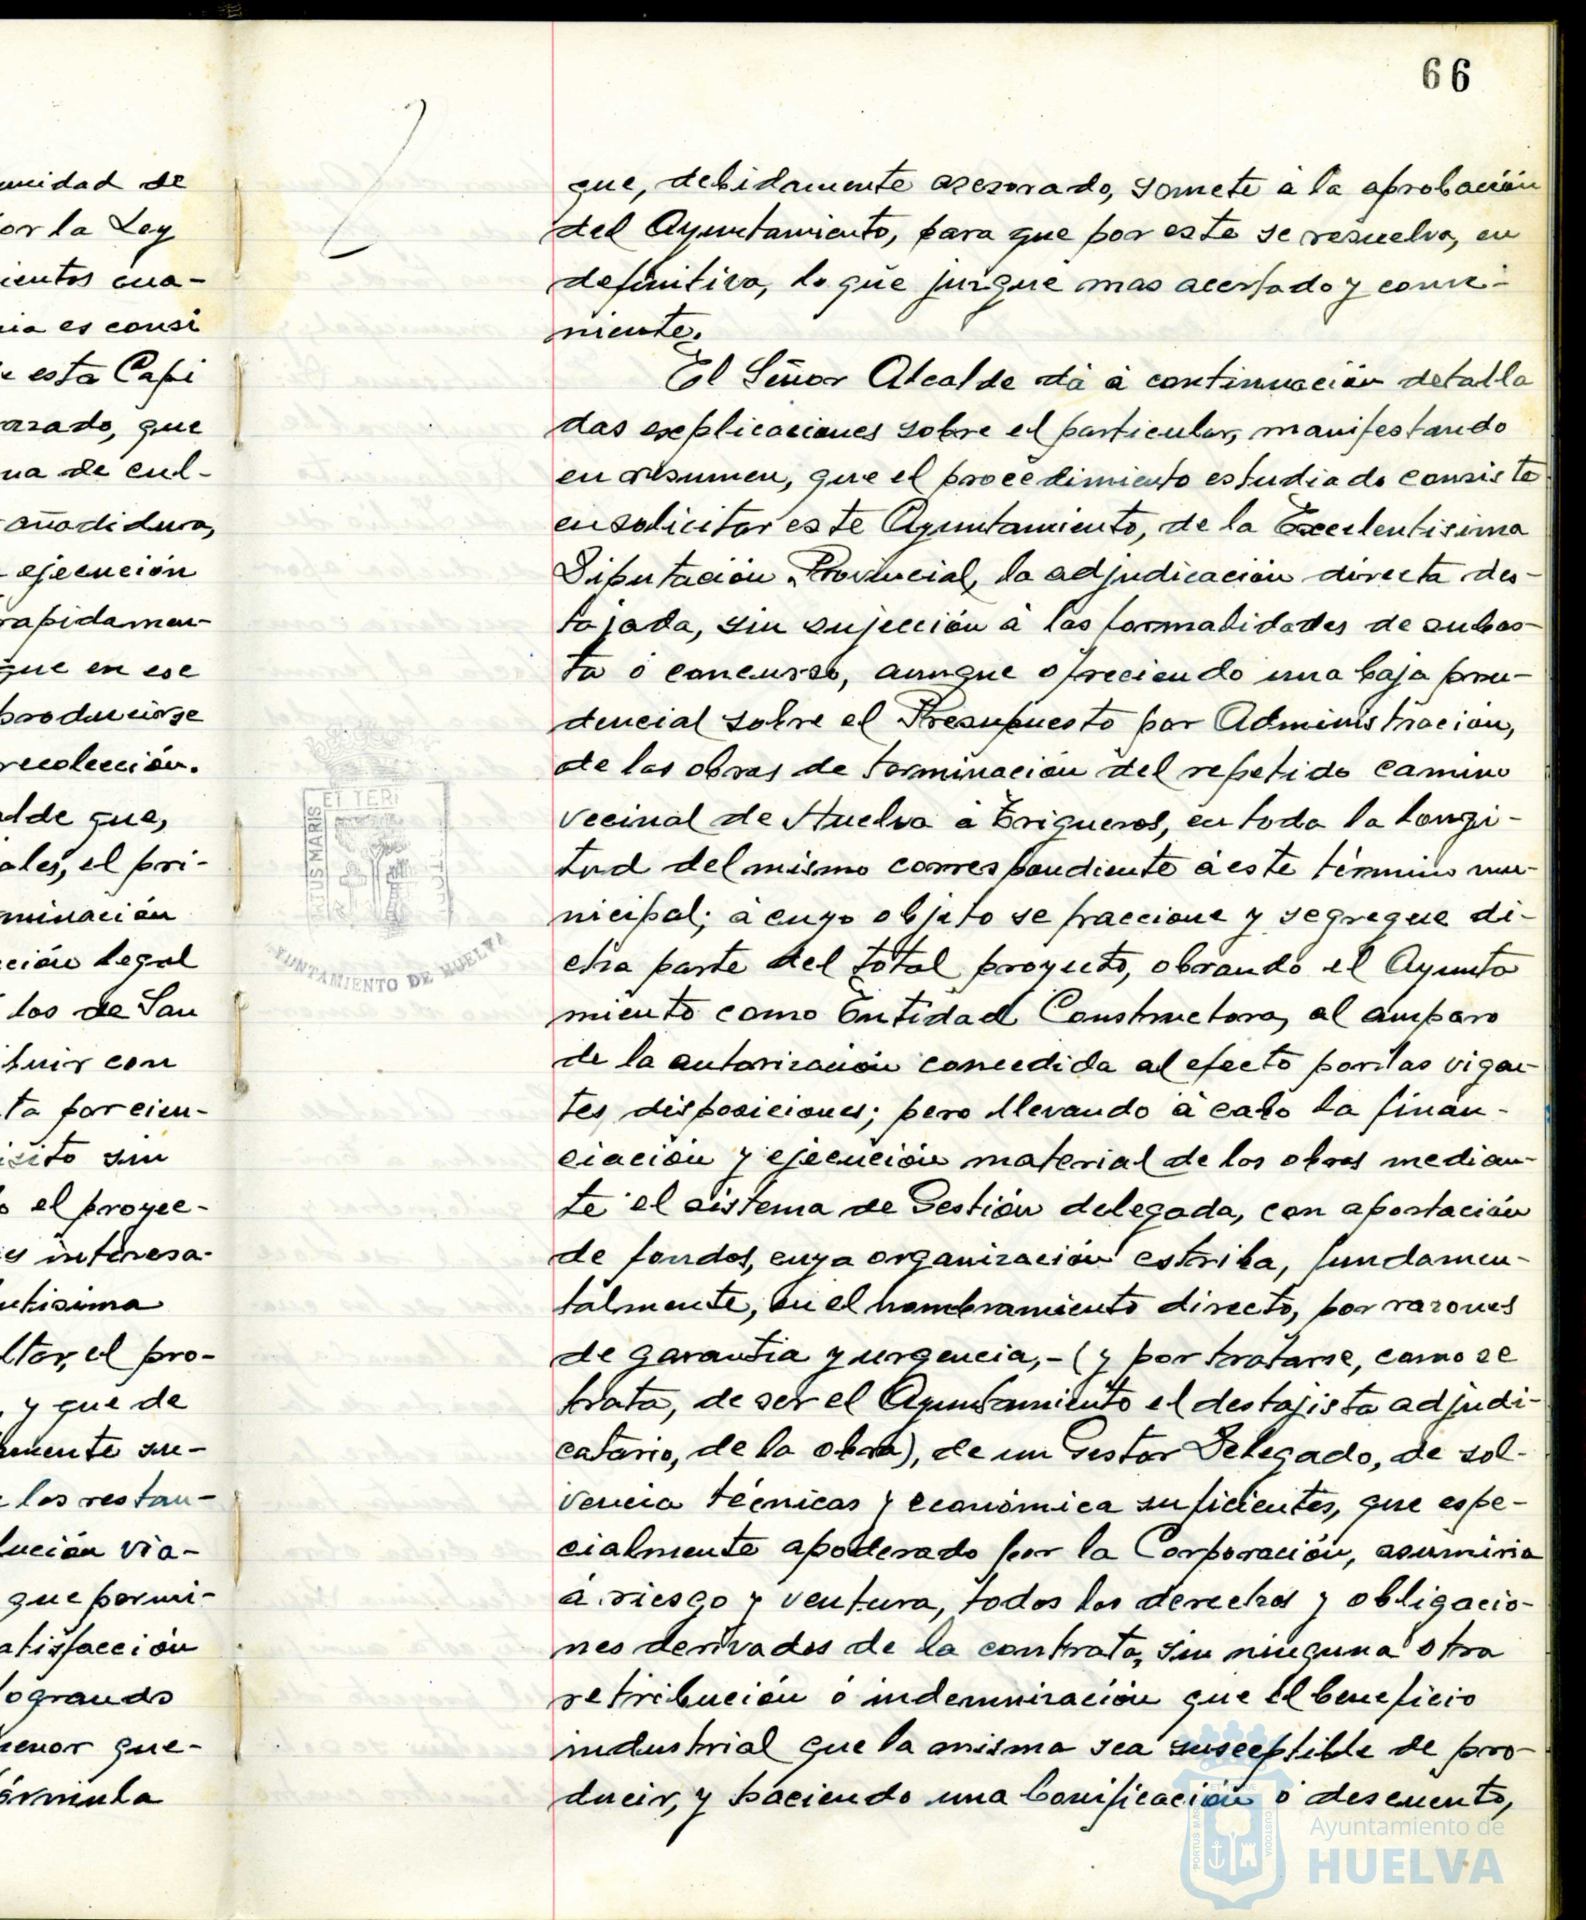 66
unidad de
or la Ley
ientos cua-
nia es consi
e esta Capi
arado, que
na de cul-
añadidura,
ejecución
rapidamen-
que en ese
producirse
recolección.
alde que,
ales, el pri-
minación
ción legal
los de San
buir con
ta por cien-
isito sin
o el proyec-
es interesa-
ntisima
ltar, el pro-
, y que de
amente su-
e los restan-
lución via-
que permi-
atisfacción
logrando
menor que-
órmula
que, debidamente asesorado, somete á la aprobación
del Ayuntamiento, para que por este se resuelva, en
definitiva, lo que juzgue mas acertado y conve-
niente.
El Señor Alcalde dá á continuación detalla
das explicaciones sobre el particular, manifestando
en resumen, que el procedimiento estudiado consiste
en solicitar este Ayuntamiento, de la Excelentisima
Diputación Provincial, la adjudicación directa des-
tajada, sin sujección á las formalidades de subas-
ta ó concurso, aunque ofreciendo una baja pru-
dencial sobre el Presupuesto por Administración,
de las obras de terminación del repetido camino
vecinal de Huelva á Trigueros, en toda la longi-
tud del mismo correspondiente á este término mu-
nicipal; á cuyo objeto se fraccione y segregue di-
cha parte del total proyecto, obrando el Ayunta
miento como Entidad Constructora, al amparo
de la autorización concedida al efecto por las vigen-
tes disposiciones; pero llevando á cabo la finan-
ciación y ejecución material de las obras median-
te el sistema de Gestión delegada, con aportación
de fondos, cuya organización estriba, fundamen-
talmente, en el nombramiento directo, por razones
de garantia y urgencia,-(y por tratarse, como se
trata, de ser el Ayuntamiento el destajista adjudi-
catario, de la obra), de un Gestor Delegado, de sol-
vencia técnicas y económica suficientes, que espe-
cialmente apoderado por la Corporación, asumiria
á riesgo y ventura, todos los derechos y obligacio-
nes derivados de la contrata, sin ninguna otra
retribución ó indemnización que el beneficio
industrial que la misma sea susceptible de pro-
ducir, y haciendo una bonificación ó descuento,
ET TERR
PORTUS MARIS
AYUNTAMIENTO DE HUELVA
PORTUS MARIS
CUSTODIA
Ayuntamiento de
HUELVA